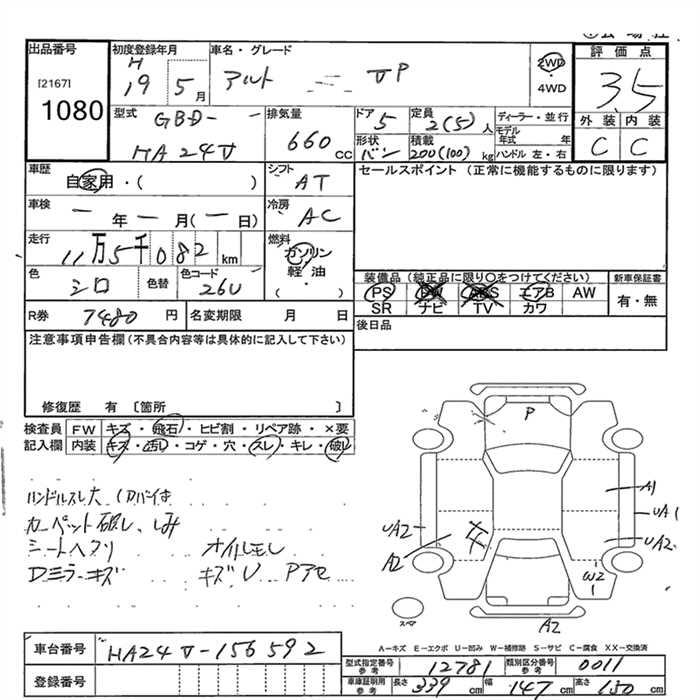 出品番号
[2167]
1080
初度登録年月
H
19 5月
車名・グレード
アルト VP
2WD
・
4WD
評価点
3.5
外装 内装
C C
型式
GBD-
HA24V
排気量
660 cc
ドア
5
定員
2(5)人
形状
バン
積載
200(100) kg
ディーラー・並行
モデル年式 年
ハンドル 左・右
車歴
自家用・( )
シフト
AT
セールスポイント (正常に機能するものに限ります)
車検
ー年ー月(ー日)
冷房
AC
走行
11万5千082 km
燃料
ガソリン
軽・油
( )
色
シロ
色替
色コード
26U
装備品 (純正品に限り○をつけてください)
PS PW ABS エアB AW
SR ナビ TV カワ
新車保証書
有・無
R券 7480 円
名変期限 月 日
後日品
注意事項申告欄 (不具合内容等は具体的に記入して下さい)
修復歴 有 〔箇所 〕
検査員
記入欄
FW キズ・飛石・ヒビ割・リペア跡・×要
内装 キズ・汚れ・コゲ・穴・スレ・キレ・破れ
ハンドルスレ大
カーペット破レ、しみ
シートヘタリ
オイルモレ
Dミラーキズ
キズU
P
A1
UA1
UA2
UA2
A2
W2
A2
スペア
車台番号 HA24V-156592
登録番号
A-キズ E-エクボ U-凹み W-補修跡 S-サビ C-腐食 XX-交換済
型式指定番号 参考 12781
類別区分番号 参考 0011
車庫証明用 参考
長さ 339 cm
幅 147 cm
高さ 150 cm